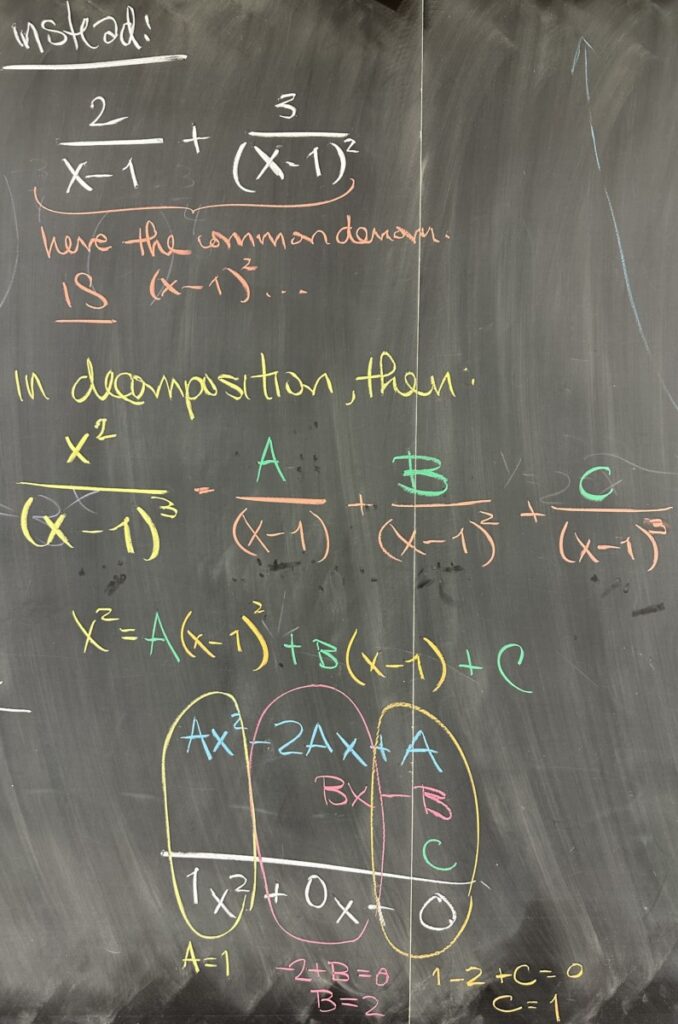 instead:
2/(x-1) + 3/(x-1)²
here the common denom.
IS (x-1)² ...
in decomposition, then:
x²/(x-1)³ = A/(x-1) + B/(x-1)² + C/(x-1)³
x² = A(x-1)² + B(x-1) + C
Ax² - 2Ax + A
Bx - B
C
1x² + 0x + 0
A=1
-2+B=0
B=2
1-2+C=0
C=1